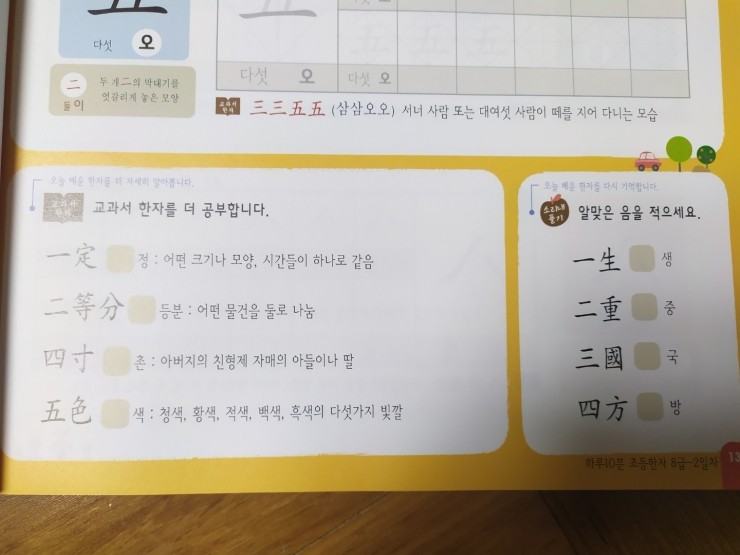 五
다섯 오
二
둘 이
두 개二의 막대기를
엇갈리게 놓은 모양
다섯 오
다섯 오
五 五 五 五
다섯 오
교과서 한자 三三五五 (삼삼오오) 서너 사람 또는 대여섯 사람이 떼를 지어 다니는 모습
오늘 배운 한자를 더 자세히 알아봅니다.
교과서 한자 교과서 한자를 더 공부합니다.
一定 정 : 어떤 크기나 모양, 시간들이 하나로 같음
二等分 등분 : 어떤 물건을 둘로 나눔
四寸 촌 : 아버지의 친형제 자매의 아들이나 딸
五色 색 : 청색, 황색, 적색, 백색, 흑색의 다섯가지 빛깔
오늘 배운 한자를 다시 기억합니다.
소리내 풀기 알맞은 음을 적으세요.
一生 생
二重 중
三國 국
四方 방
하루10분 초등한자 8급-2일차
13